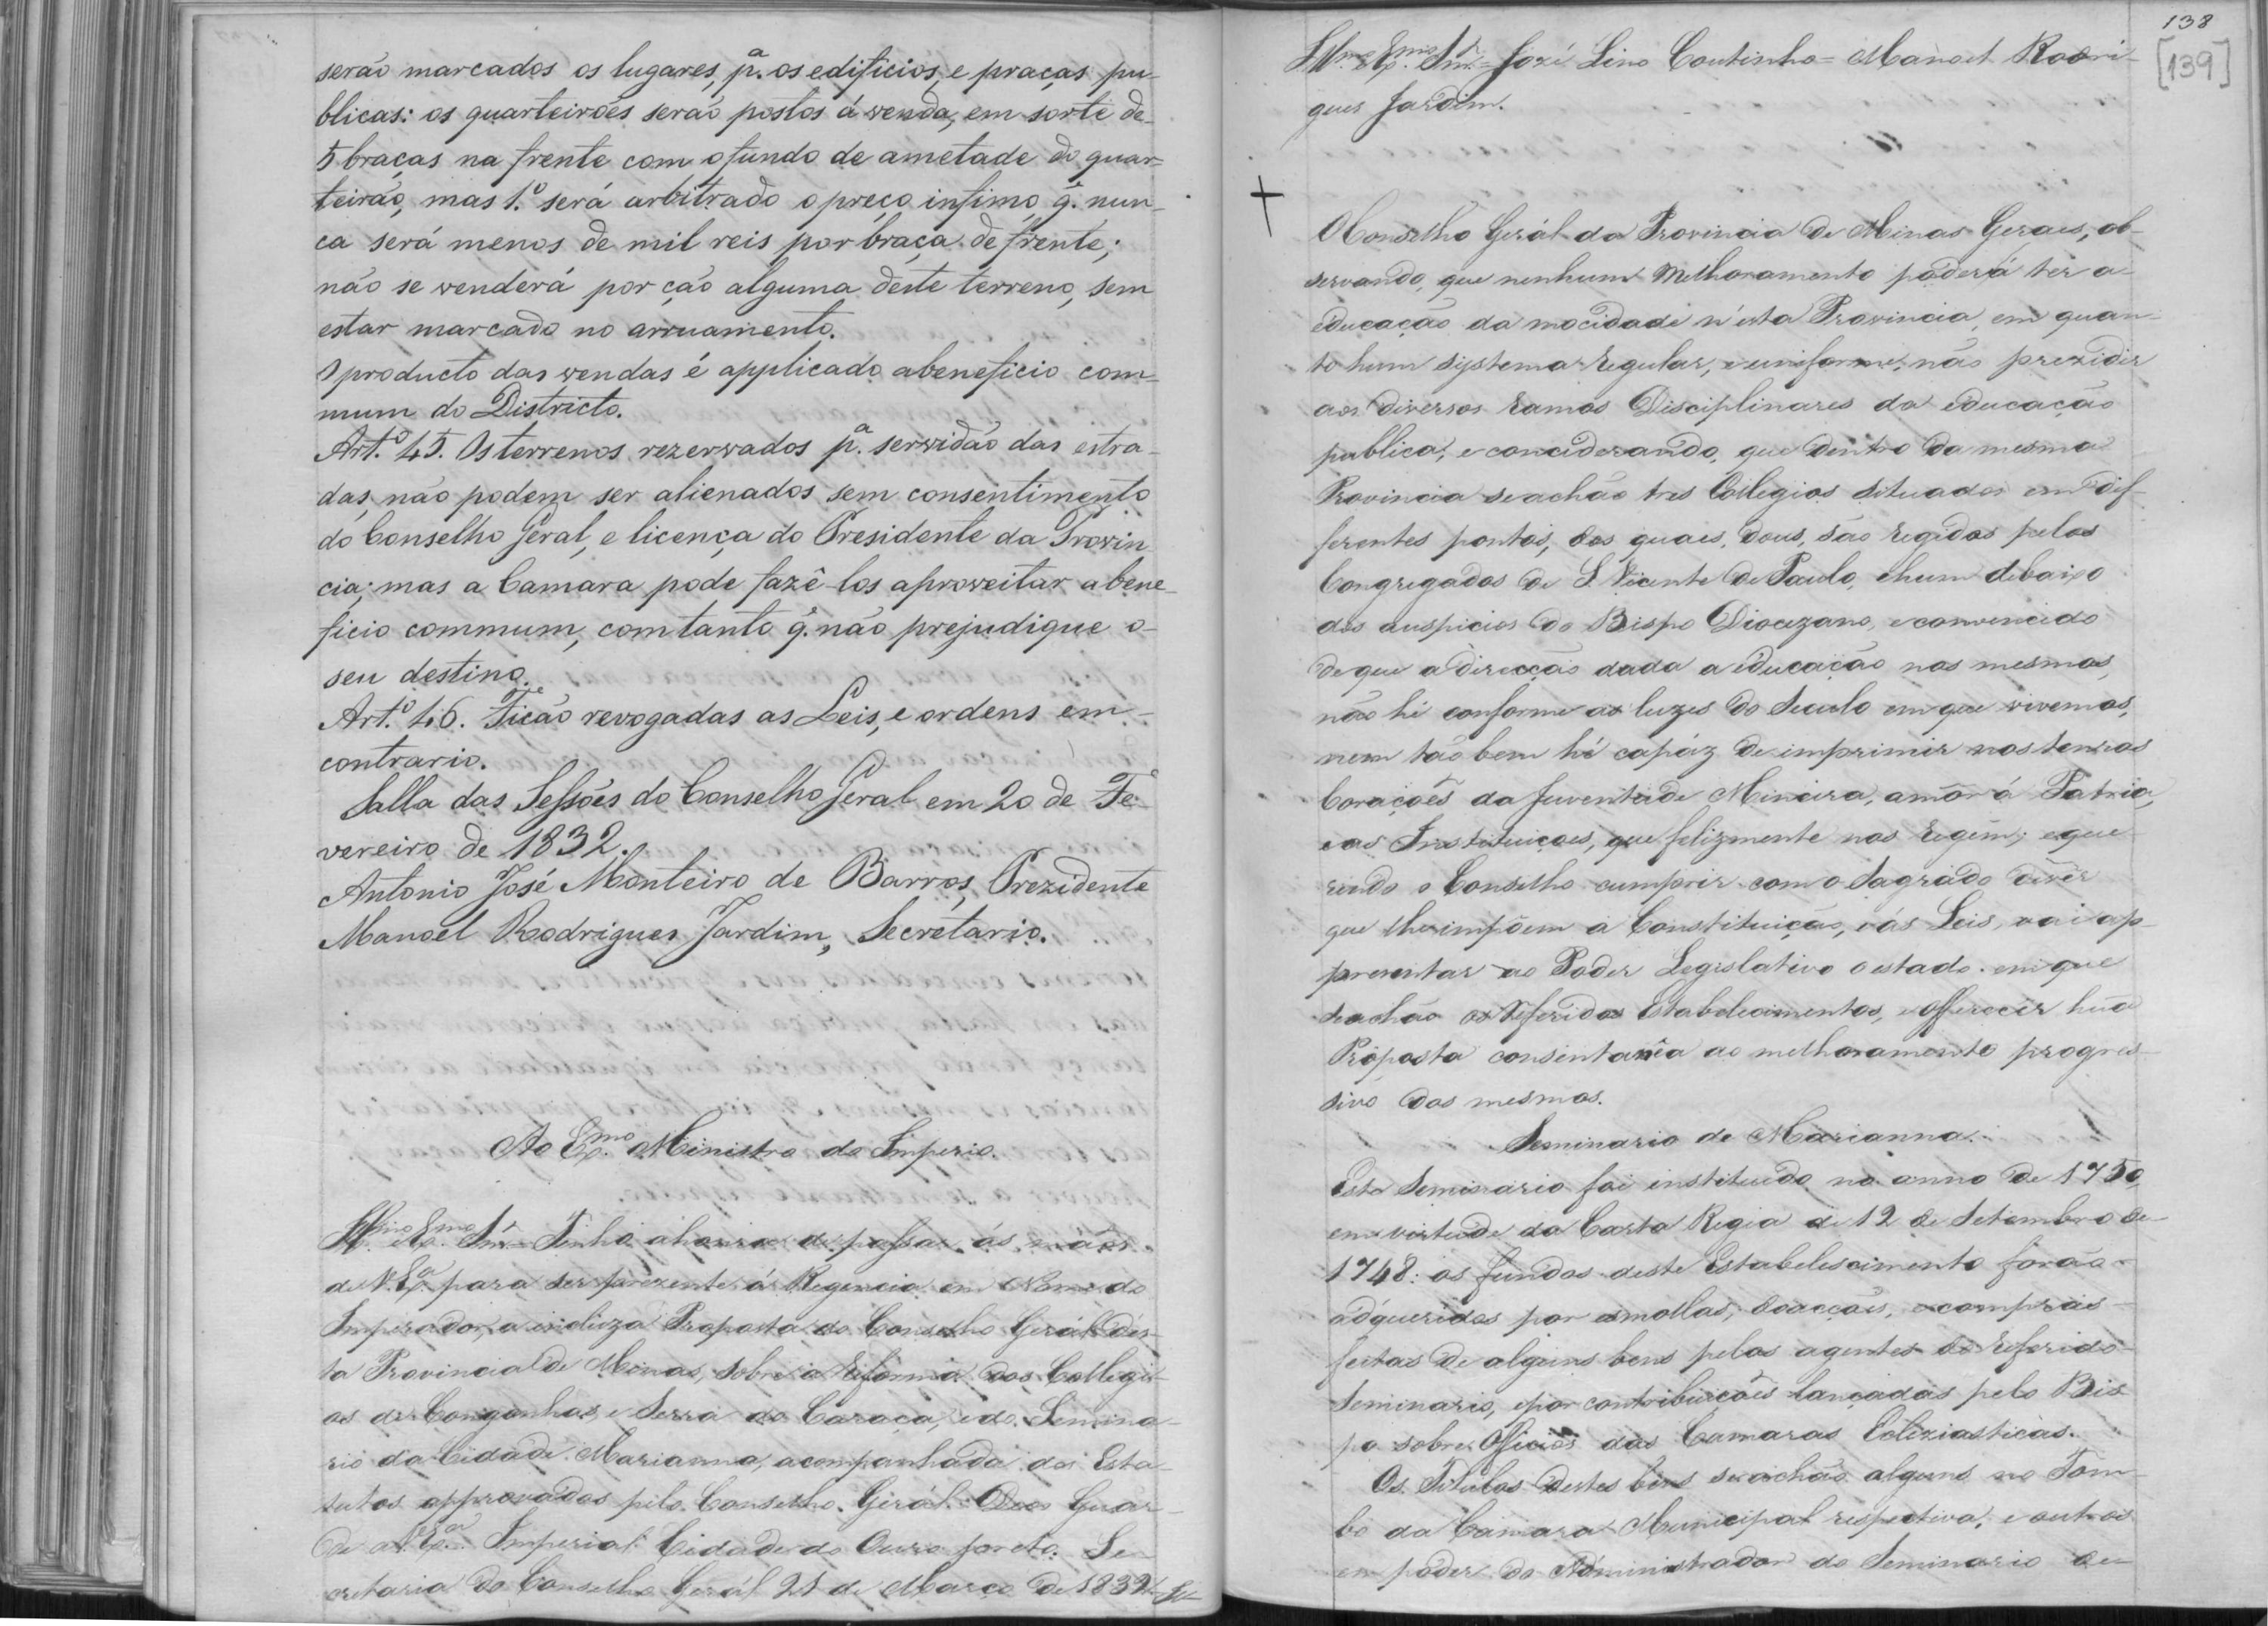 serão marcados os lugares, p.ª os edificios, e praças pu-
blicas: os quarteirões serão postos á venda, em sorte de
5 braças na frente com o fundo de ametade do quar=
teirão, mas 1.º será arbitrado o preço infimo q̃. nun-
ca será menos de mil reis por braça de frente;
não se venderá por ção alguma deste terreno, sem
estar marcado no arruamento.
O producto das vendas é applicado a beneficio com=
mum do Districto.
Art.º 45. Os terrenos rezervados p.ª servidão das estra-
das, não podem ser alienados sem consentimento
do Conselho Geral, e licença do Presidente da Provin
cia; mas a Camara pode fazê-los aproveitar a bene-
ficio commum, com tanto q̃. não prejudique o-
seu destino.
Art.º 46. Ficão revogadas as Leis, e ordens em-
contrario.
Salla das Sessões do Conselho Geral em 20 de Fe-
vereiro de 1832.
Antonio José Monteiro de Barros, Prezidente
Manoel Rodrigues Jardim, Secretario.
Ao Ex.mo Ministro do Imperio.
Ill.mo Ex.mo Snr.= Tenho a honra de passar ás mãos
de V. Ex.ª para ser prezente á Regencia em Nome do
Imperador, a incluza Proposta do Conselho Gerál des-
ta Provincia de Minas, sobre a reforma dos Collegi-
os de Congonhas, e Serra do Caraça, e do Semina-
rio da Cidade Marianna, acompanhada dos Esta-
tutos approvados pelo Conselho Gerál. Deos Guar-
de a V. Ex.ª Imperial Cidade do Ouro preto. Se-
cretaria do Conselho Gerál 21 de Março de 1832
138
[139]
Ill.mo Ex.mo Snr.= Jozé Lino Coutinho= Manoel Rodri-
gues Jardim.
O Conselho Gerál da Provincia de Minas Geraes, ob-
servando, que nenhum melhoramento poderá ter a-
educação da mocidade n'esta Provincia, em quan-
to hum systema regular, e uniforme, não prezidir
aos diversos ramos Disciplinares da educação
publica, e conciderando, que dentro da mesma
Provincia se achão tres Collegios situados em dif-
ferentes pontos, dos quaes, dous, são regidos pelos
Congregados de S. Vicente de Paulo, e hum debaixo
dos auspicios do Bispo Diocezano, e convencido
de que a direcção dada a educação nos mesmos,
não hé conforme as luzes do Seculo em que vivemos,
nem tão bem hé capáz de imprimir nos tenros
Corações da Juventude Mineira, amôr á Patria,
e as Instituiçoes, que felizmente nos regem; e que-
rendo o Conselho cumprir com o Sagrado devêr
que lhe impõem a Constituição, e ás Leis, vai ap-
prezentar ao Poder Legislativo o estado em que
se achão os referidos Estabelecimentos, e offerecêr huã
Proposta consintanêa ao melhoramento progres-
sivo dos mesmos.
Seminario de Marianna.
Este Seminario foi instituido no anno de 1750,
em virtude da Carta Regia de 12 de Setembro de
1748: os fundos deste Estabelescimento forão
adqueridos por esmollas, doacções, e compras
feitas de alguns bens pelos agentes do referido
Seminario, e por contribuições lançadas pelo Bis-
po sobre Officios das Camaras Ecleziasticas.
Os Titulos destes bens se achão alguns no Tom-
bo da Camara Municipal respectiva, e outros
em poder do Administrador do Seminario de